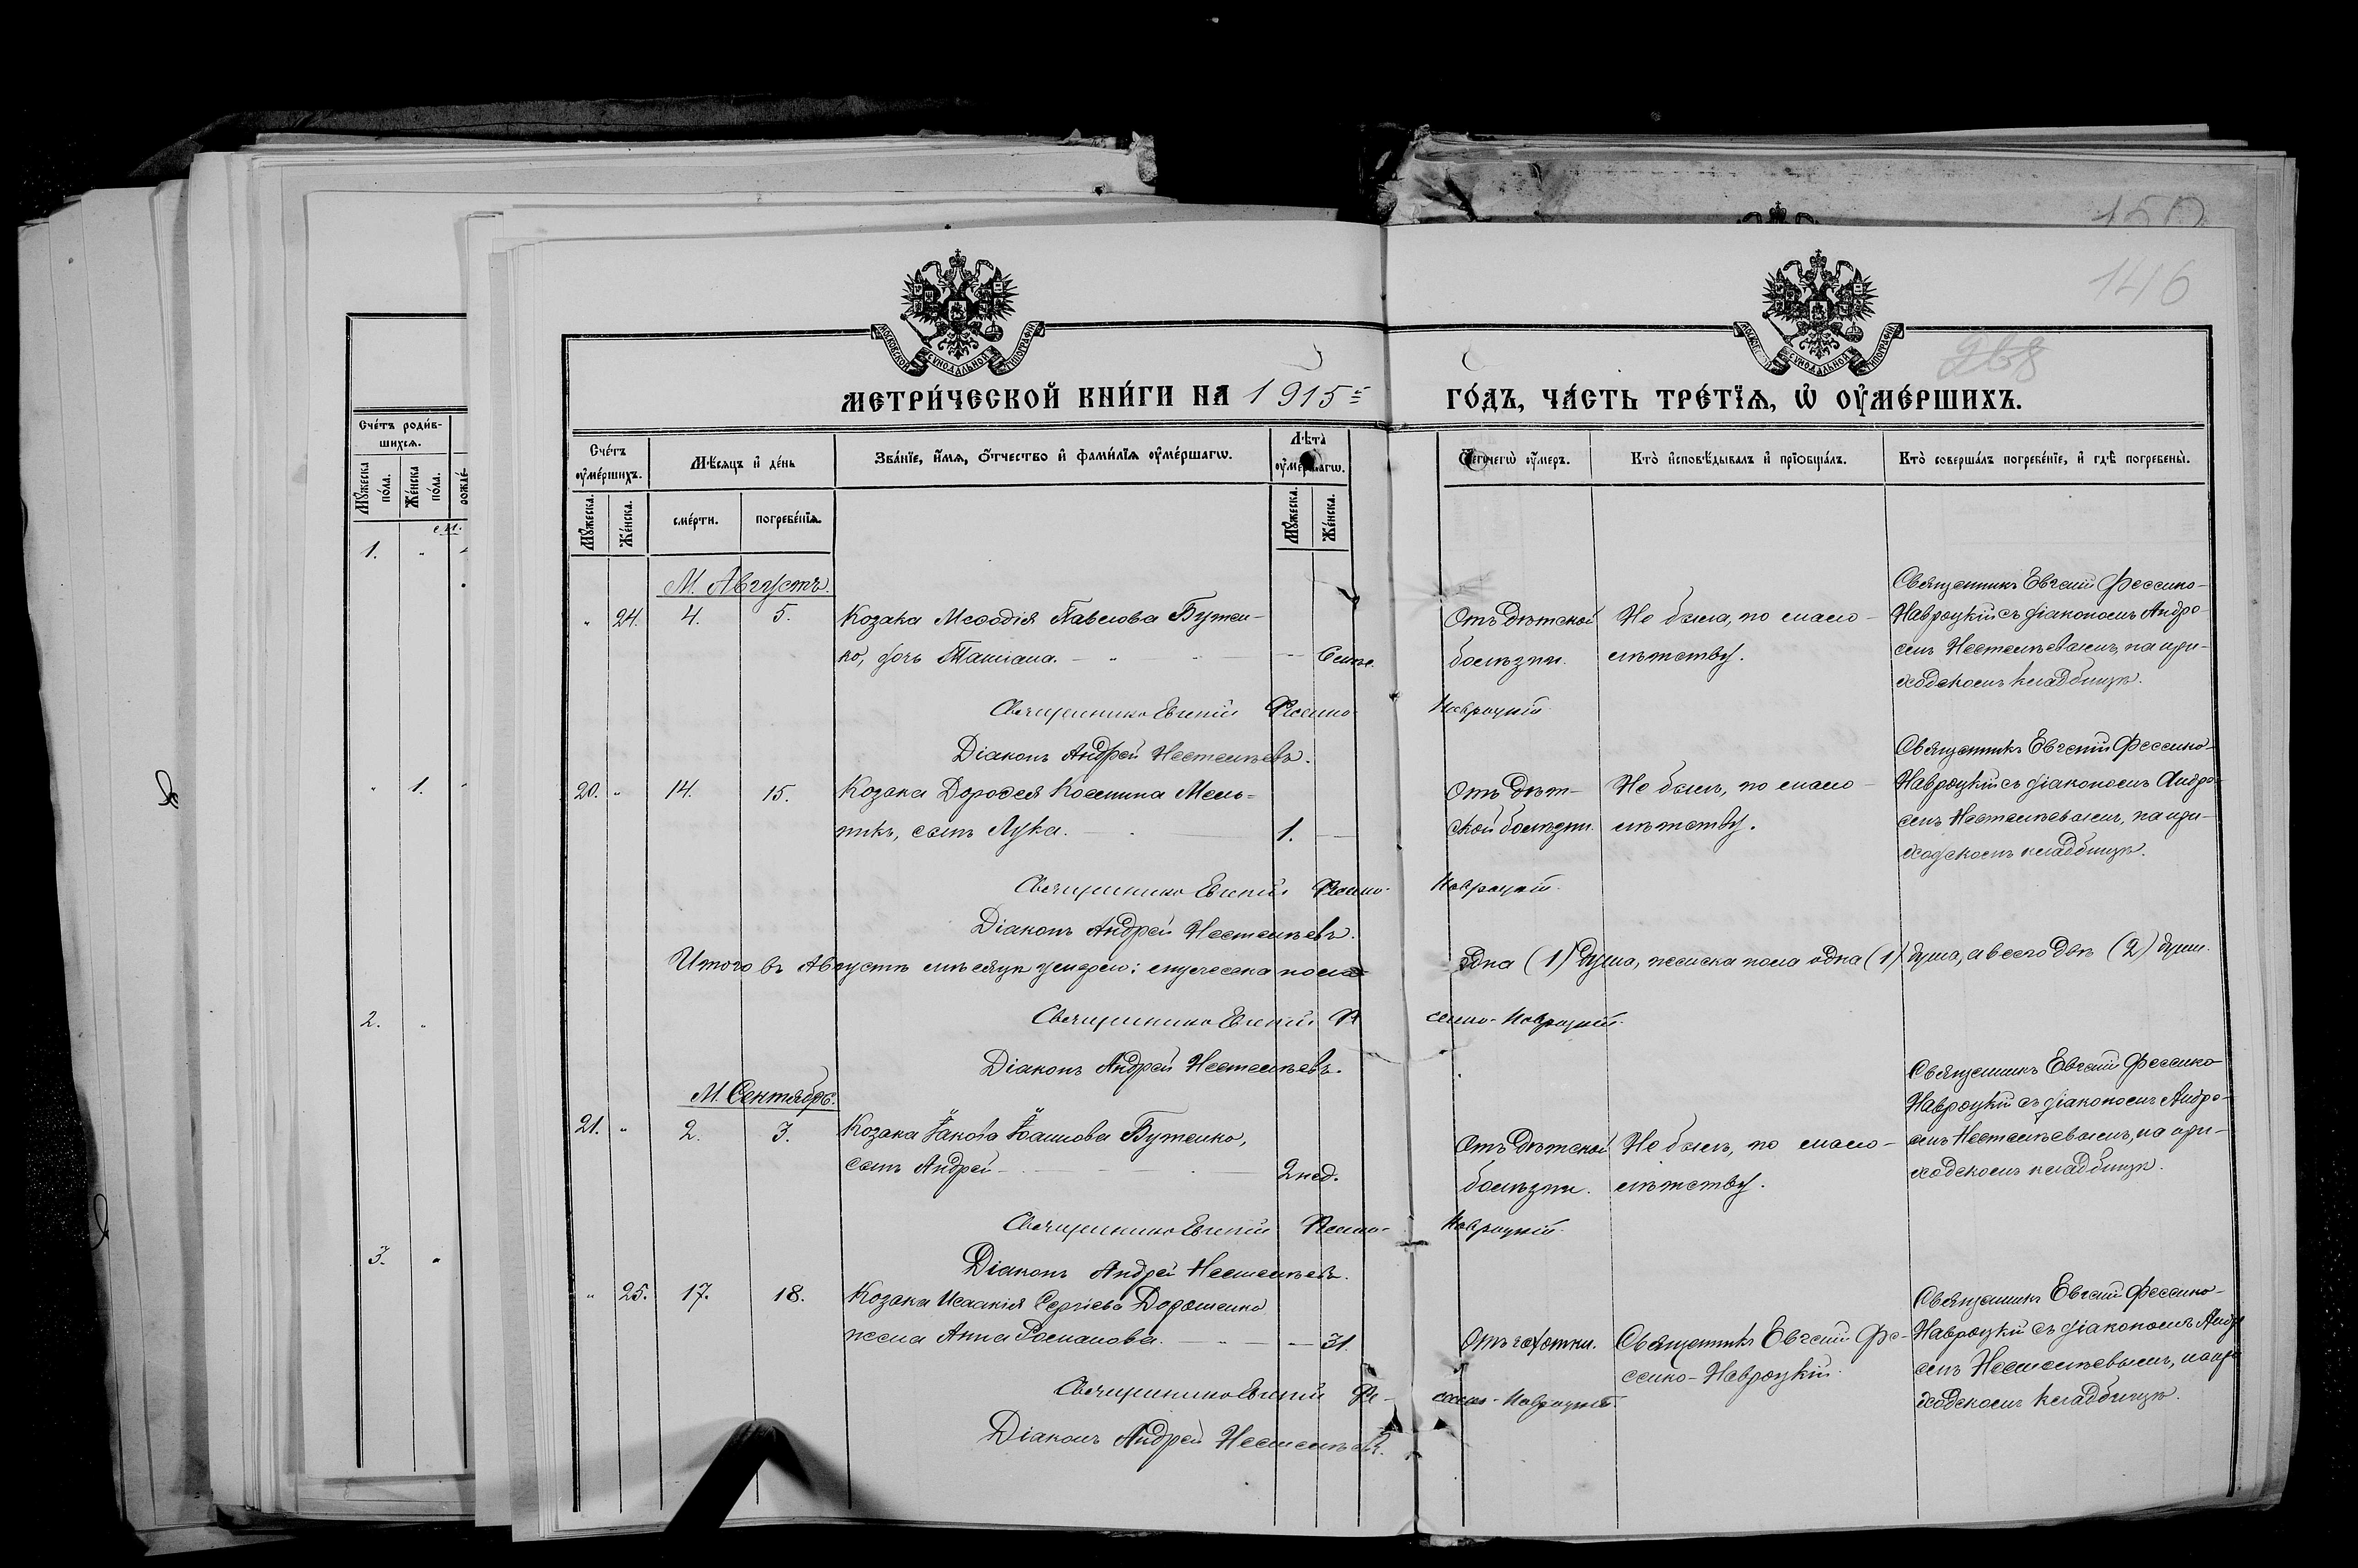 150
146
268
МОСКОВСКОЙ СѴНОДАЛЬНОЙ ТИПОГРАФІИ
МОСКОВСКОЙ СѴНОДАЛЬНОЙ ТИПОГРАФІИ
МЕТРИ́ЧЕСКОЙ КНИ́ГИ НА 1915 ГО́ДЪ, ЧА́СТЬ ТРЕ́ТЇѦ, Ѡ҆ ОУ҆МЕ́РШИХЪ.
Сче́тъ роди́в-
шихсѧ.
Мꙋ́жеска по́ла.
Же́нска по́ла.
рожде́-
1.
1.
2.
3.
Сче́тъ оу҆ме́ршихъ.
Мꙋ́жеска.
Же́нска.
Мѣ́сѧцъ и҆ де́нь
сме́рти.
погребе́нїѧ.
Зва́нїе, и҆́мѧ, ѻ҆́тчество и҆ фами́лїѧ оу҆ме́ршагѡ.
Лѣ́та оу҆ме́ршагѡ.
Мꙋ́жеска.
Же́нска.
Ѿчегѡ̀ оу҆́меръ.
Кто̀ и҆сповѣ́дывалъ и҆ прїѡбща́лъ.
Кто̀ соверша́лъ погребе́нїе, и҆ гдѣ̀ погребены̀.
М. Августъ.
" 24. 4. 5. Козака Меѳодія Павлова Бутен-
ко, дочь Татіана. 6 мѣс.
Отъ дѣтской
болѣзни.
Не была, по мало-
лѣтству.
Священникъ Евгеній Фесенко-
Навроцкій съ діакономъ Андре-
емъ Нестелѣевымъ, на при-
ходскомъ кладбищѣ.
Священникъ Евгеній Фесенко-Навроцкій.
Діаконъ Андрей Нестелѣевъ.
20. " 14. 15. Козака Дороѳея Косьмина Мель-
никъ, сынъ Лука. 1.
Отъ дѣт-
ской болѣзни.
Не былъ, по мало-
лѣтству.
Священникъ Евгеній Фесенко-
Навроцкій съ діакономъ Андре-
емъ Нестелѣевымъ, на при-
ходскомъ кладбищѣ.
Священникъ Евгеній Фесенко-Навроцкій.
Діаконъ Андрей Нестелѣевъ.
Итого въ Августѣ мѣсяцѣ умерло: мужеска пола одна (1) душа, женска пола одна (1) душа, а всего двѣ (2) души.
Священникъ Евгеній Фесенко-Навроцкій.
Діаконъ Андрей Нестелѣевъ.
М. Сентябрь.
21. " 2. 3. Козака Іакова Іоаннова Бутенко,
сынъ Андрей 2 нед.
Отъ дѣтской
болѣзни.
Не былъ, по мало-
лѣтству.
Священникъ Евгеній Фесенко
Навроцкій съ діакономъ Андре-
емъ Нестелѣевымъ, на при-
ходскомъ кладбищѣ.
Священникъ Евгеній Фесенко-Навроцкій.
Діаконъ Андрей Нестелѣевъ.
" 25. 17. 18. Козака Исаакія Сергіева Дорошенко
жена Анна Романова. 31.
Отъ чахотки.
Священникъ Евгеній Фе-
сенко-Навроцкій.
Священникъ Евгеній Фесенко-
Навроцкій съ діакономъ Андре
емъ Нестелѣевымъ, на при
ходскомъ кладбищѣ.
Священникъ Евгеній Фесенко-Навроцкій.
Діаконъ Андрей Нестелѣевъ.